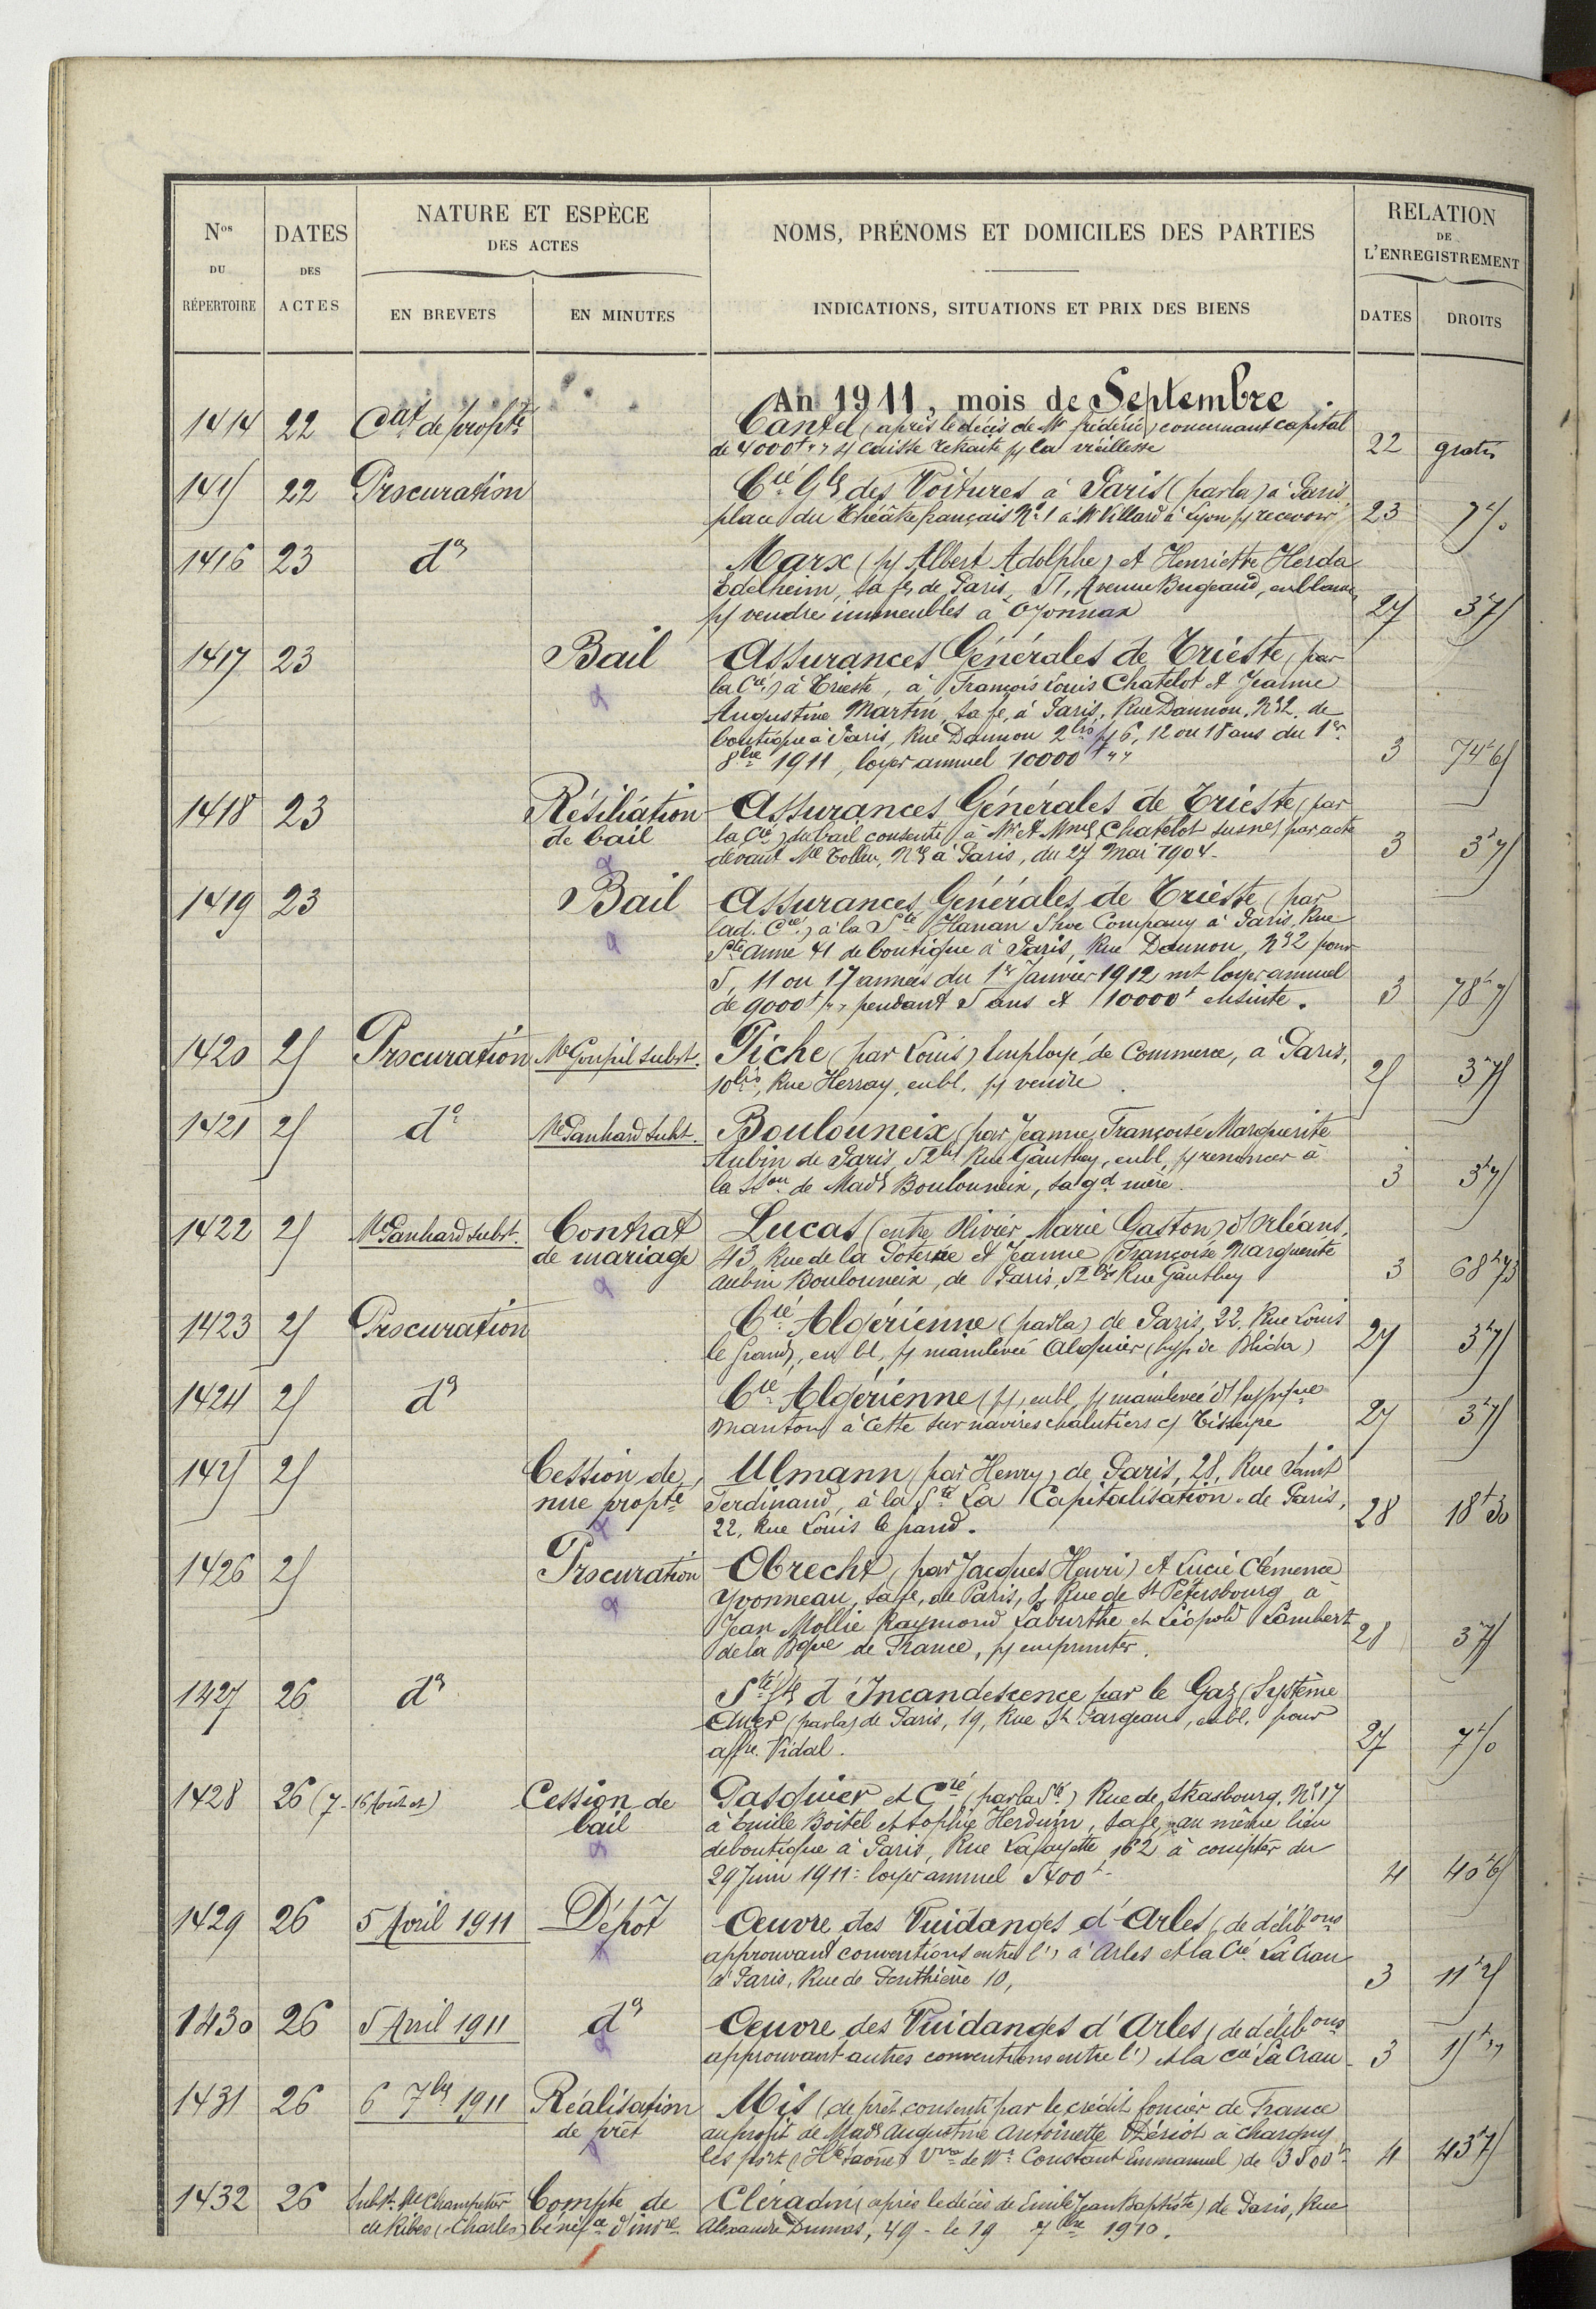 Nos DU RÉPERTOIRE
DATES DES ACTES
NATURE ET ESPÈCE DES ACTES
EN BREVETS
EN MINUTES
NOMS, PRÉNOMS ET DOMICILES DES PARTIES
INDICATIONS, SITUATIONS ET PRIX DES BIENS
RELATION DE L'ENREGISTREMENT
DATES
DROITS
An 1911, mois de Septembre
1414 22 Cat de propté Cantel (après le décès de Mr frédéric) concernant capital
de 4000f s/ caisse retraite p/ la vieillesse 22 gratis
1415 22 Procuration Cie Gle des Voitures à Paris (par la) à Paris
place du Théâtre français No 1 à Mr Villard à Lyon p/ recevoir 23 7f50
1416 23 do Marx (p/ Albert Adolphe) et Henriette Herda
Edelheim, sa fe, de Paris, 51, Avenue Bugeaud, en blanc
p/ vendre immeubles à Oyonnax 27 3f75
1417 23 Bail Assurances Générales de Trieste (par
la Cie) à Trieste, à François Louis Chatelot et Jeanne
Augustine Martin, sa fe, à Paris, Rue Daunou, No 2, de
boutique à Paris, Rue Daunou 2bis p/ 6, 12 ou 18 ans du 1er
8bre 1911, loyer annuel 10000f 3 74f65
1418 23 Résiliation Assurances Générales de Trieste, par
de bail la Cie) du bail consenti à Mr et Mme Chatelot susnés par acte
devant Me Tollu, Nre à Paris, du 27 Mai 1904. 3 3f75
1419 23 Bail Assurances Générales de Trieste (par
lad. Cie) à la Sté Hanan Shoe Company à Paris, Rue
Ste Anne 41 de boutique à Paris, Rue Daunou, No 2 pour
5, 11 ou 17 années du 1er Janvier 1912 mt loyer annuel
de 9000f pendant 5 ans et 10000f ensuite. 3 78f75
1420 25 Procuration Me Goupil subst. Piche (par Louis) Employé de Commerce, à Paris,
10bis, Rue Herray, en bl. p/ vendre 25 3f75
1421 25 do Me Panhard subst. Boulouneix (par Jeanne Françoise Marguerite
Aubin de Paris, 52bis Rue Gauthey, en bl. p/ renoncer à
la sson de Made Boulouneix, sa gd mère. 3 3f75
1422 25 Me Panhard subst. Contrat Lucas (entre Olivier Marie Gaston) d'Orléans,
de mariage 43, Rue de la Poterne et Jeanne Françoise Marguerite
Aubin Boulouneix, de Paris, 52bis Rue Gauthey 3 68f75
1423 25 Procuration Cie Algérienne (par la) de Paris, 22, Rue Louis
le Grand, en bl. p/ mainlevée Alquier (hyp. de Blida) 27 3f75
1424 25 do Cie Algérienne (p/) en bl. p/ mainlevée d'
Manton à Cette sur navires chalutiers c/ 27 3f75
1425 25 Cession de Ulmann (par Henry) de Paris, 28, Rue Saint
nue propté Ferdinand, à la Sté La Capitalisation de Paris,
22, Rue Louis le Grand. 28 18f30
1426 25 Procuration Obrecht (par Jacques Henri) et Lucie Clémence
Yvonneau, sa fe, de Paris, Rue de St Pétersbourg à
Jean Mollié Raymond Laburthe et Léopold Lambert
de la Bque de France, p/ emprunter. 28 3f75
1427 26 do Sté fse d'Incandescence par le Gaz (Système
Auer (par la) de Paris, 19, Rue St Fargeau, en bl. pour
affre. Vidal. 27 7f50
1428 26 (7-16 Août et) Cession de Pasquier et Cie (par la Sté) Rue de Strasbourg, No 17
bail à Emile Boitel et Sophie Herduin, sa fe, au même lieu
de boutique à Paris, Rue Lafayette 162 à compter du
29 Juin 1911: loyer annuel 5400f. 4 40f65
1429 26 5 Avril 1911 Dépôt Oeuvre des Vuidanges d'Arles (de délibons
approuvant conventions entre l') à Arles et la Cie La Crau
à Paris, Rue de Penthièvre 10, 3 11f25
1430 26 5 Avril 1911 do Oeuvre des Vuidanges d'Arles (de délibons
approuvant autres conventions entre l') et la Cie La Crau 3 15f
1431 26 6 7bre 1911 Réalisation Mis (de prêt consenti par le crédit foncier de France
de prêt au profit de Made Augustine Antoinette Dériot à Chargey
les port (Hte Saône) Vve de Mr Constant Emmanuel) de 3500f 4 43f75
1432 26 Subst. Me Champetier Compte de Cléradin (après le décès de Emile Jean Baptiste) de Paris, Rue
de Ribes (Charles) bénéfce d'invre Alexandre Dumas, 49 - le 19 7bre 1910.